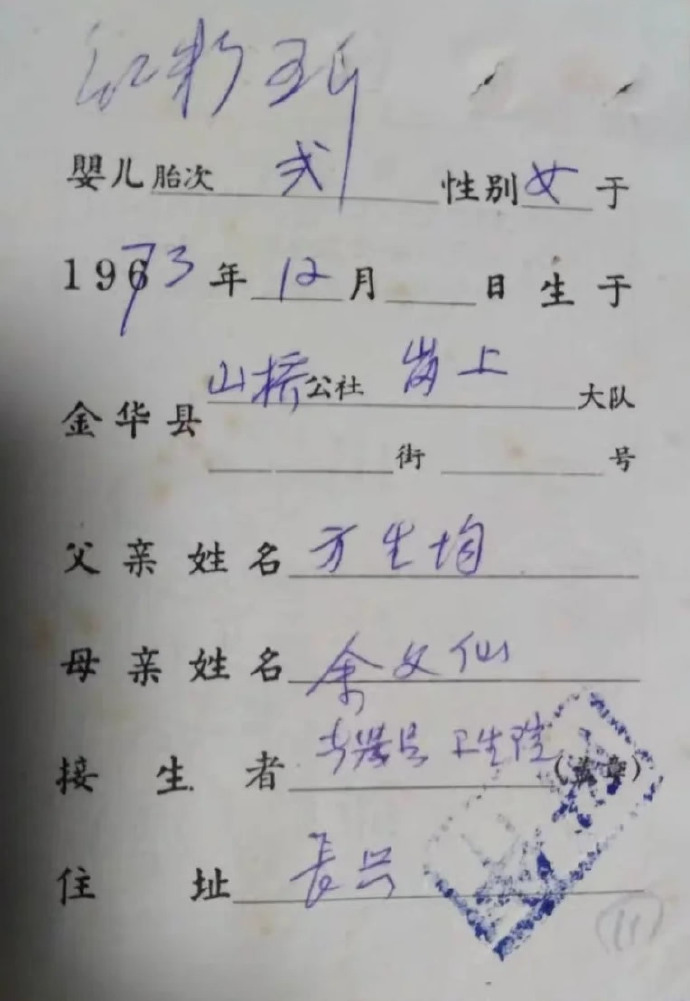 婴儿胎次 弍 性别 女 于
1973年 12 月 日生于
山桥公社 岗上 大队
金华县
街 号
父亲姓名 方生均
母亲姓名 余文仙
接生者 卫生院 (盖章)
住址 長
(11)